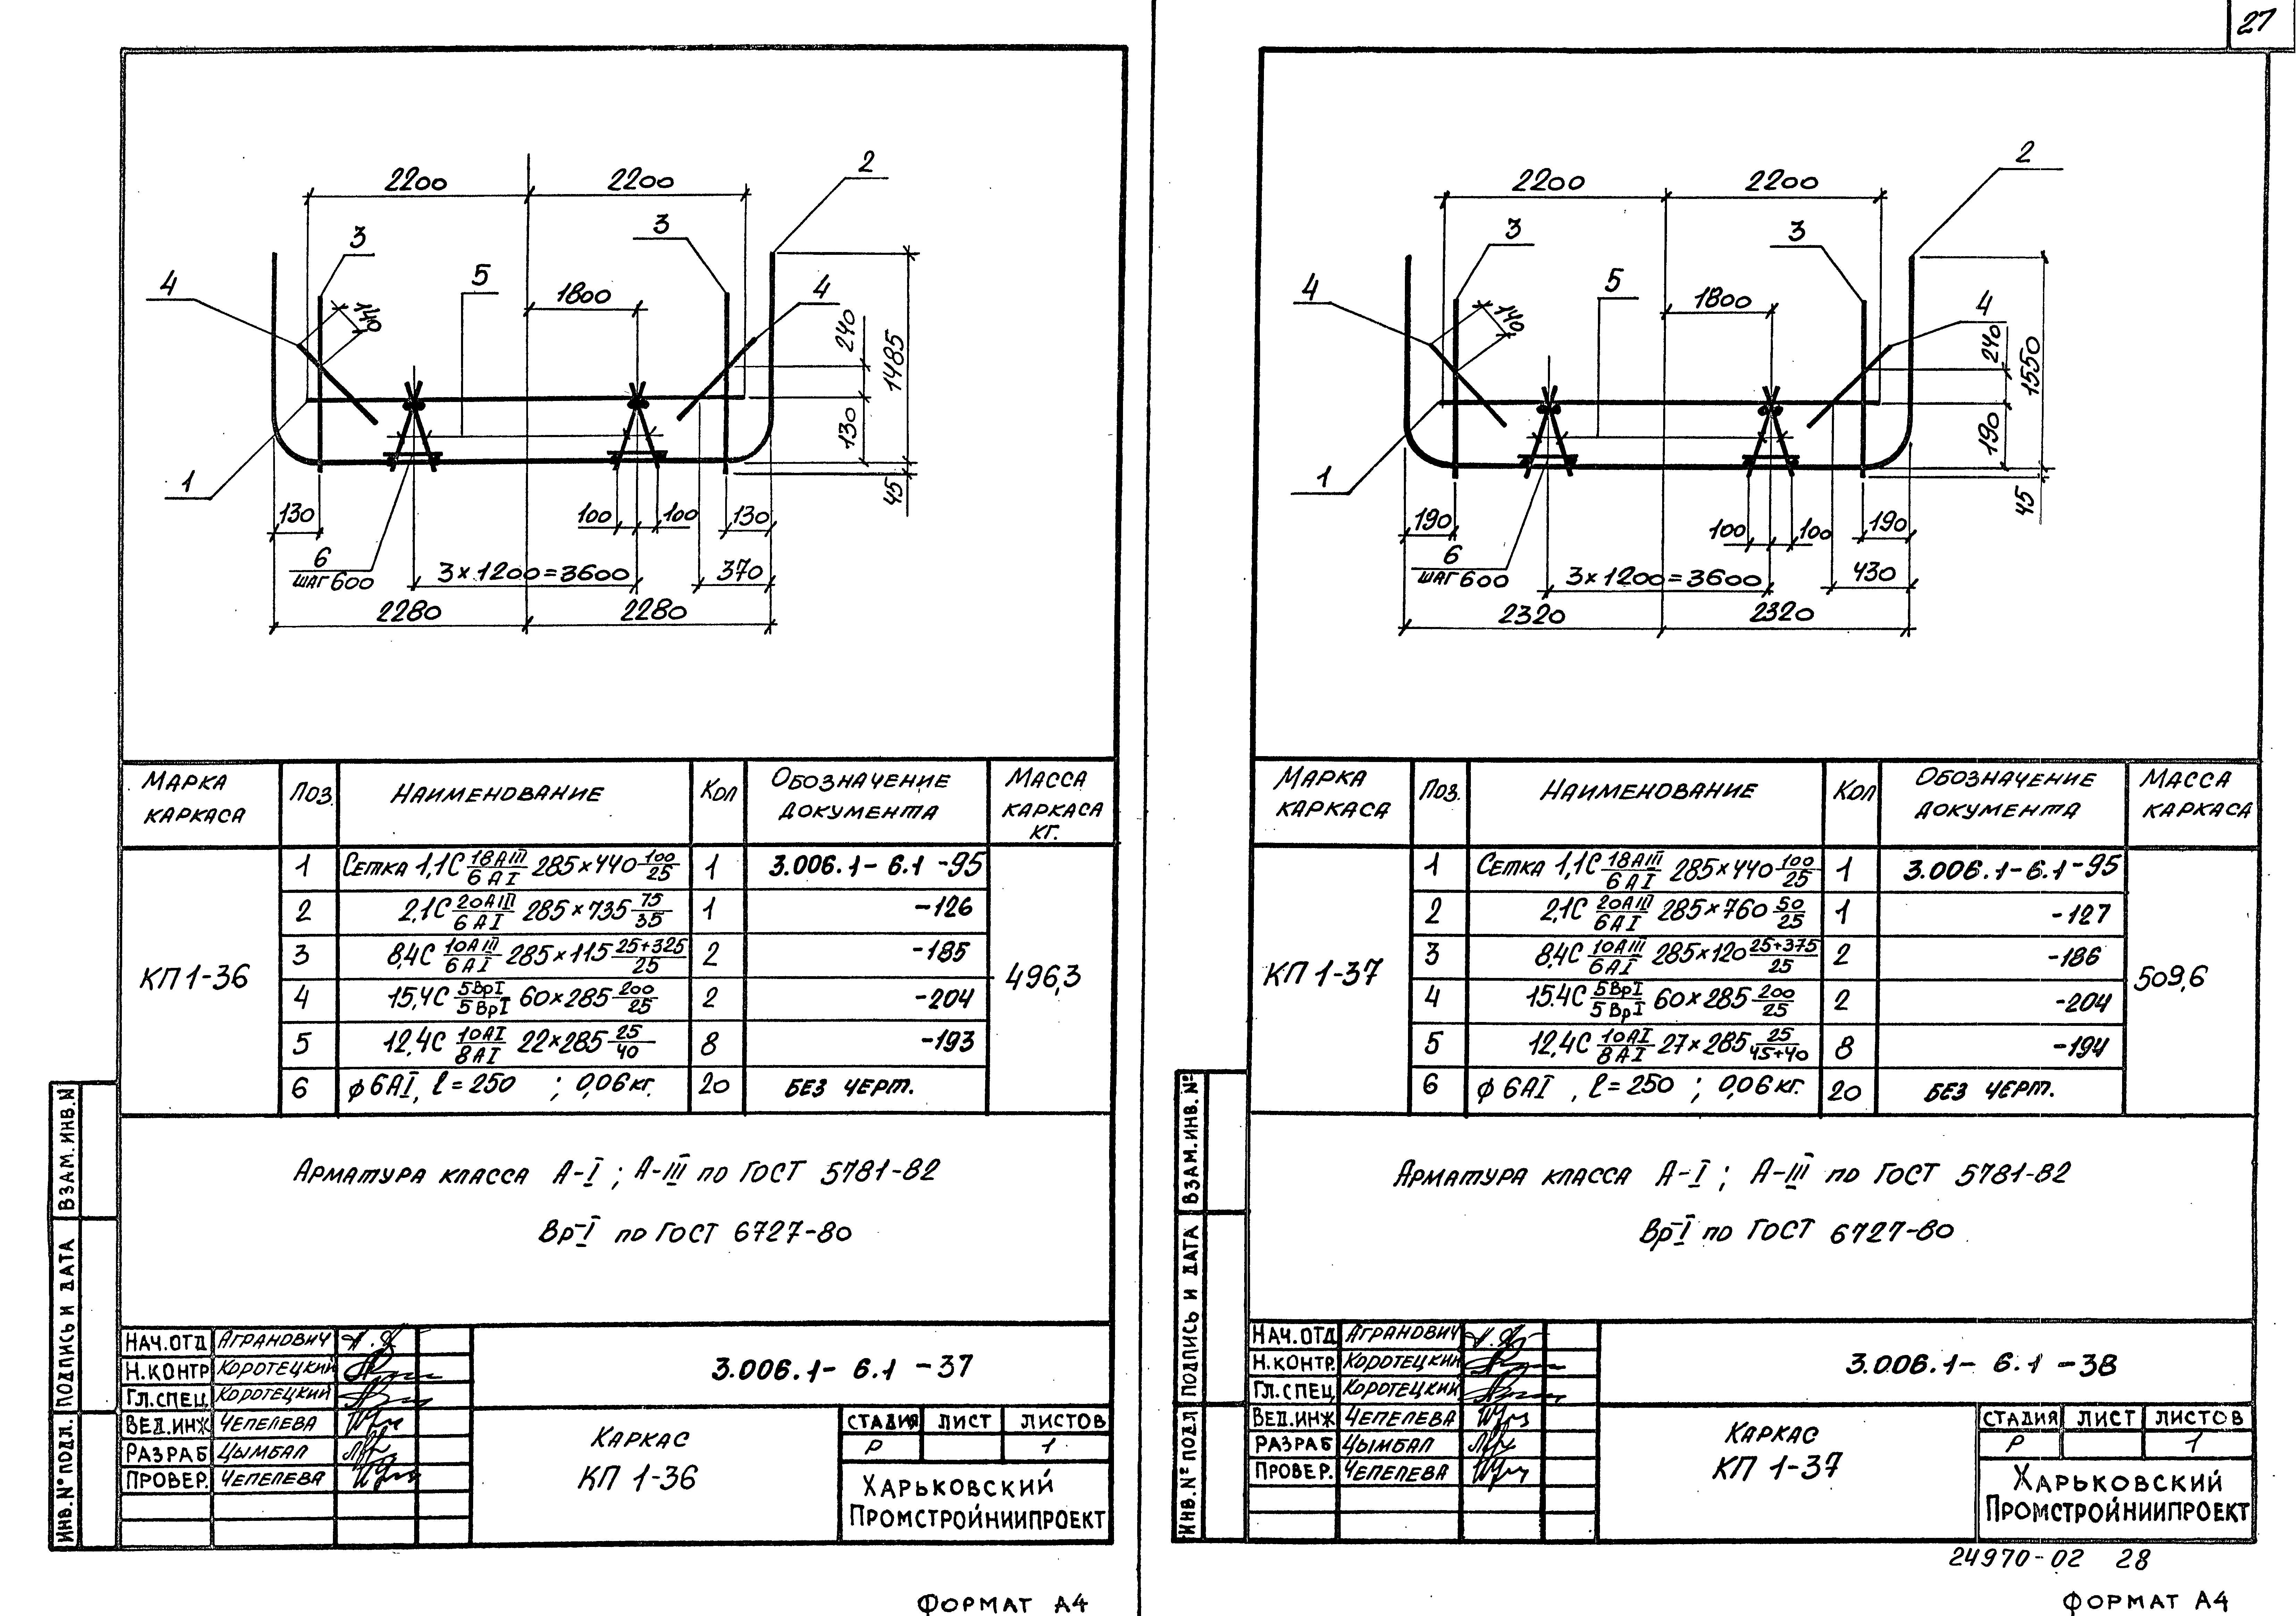 27
2200 2200
2
3 3
4 5 1800 4
140
240
1485
130
45
1
130 100 100 130
6
ШАГ 600
3×1200=3600 370
2280 2280
МАРКА КАРКАСА ПОЗ. НАИМЕНОВАНИЕ КОЛ ОБОЗНАЧЕНИЕ ДОКУМЕНТА МАССА КАРКАСА КГ.
КП 1-36 496,3
1 СЕТКА 1,1С 18АIII/6АI 285×440 100/25 1 3.006.1-6.1-95
2 2,1С 20АIII/6АI 285×735 75/35 1 -126
3 8,4С 10АIII/6АI 285×115 25+325/25 2 -185
4 15,4С 5ВрI/5ВрI 60×285 200/25 2 -204
5 12,4С 10АI/8АI 22×285 25/40 8 -193
6 ϕ6АI, ℓ=250 ; 0,06кг. 20 БЕЗ ЧЕРТ.
АРМАТУРА КЛАССА А-I; А-III ПО ГОСТ 5781-82
Вр-I ПО ГОСТ 6727-80
ВЗАМ.ИНВ.N
ПОДПИСЬ И ДАТА
ИНВ.№ ПОДЛ.
НАЧ.ОТД АГРАНОВИЧ
Н.КОНТР КОРОТЕЦКИЙ
ГЛ.СПЕЦ КОРОТЕЦКИЙ
ВЕД.ИНЖ ЧЕПЕЛЕВА
РАЗРАБ ЦЫМБАЛ
ПРОВЕР. ЧЕПЕЛЕВА
3.006.1-6.1-37
КАРКАС
КП 1-36
СТАДИЯ ЛИСТ ЛИСТОВ
Р 1
ХАРЬКОВСКИЙ
ПРОМСТРОЙНИИПРОЕКТ
ФОРМАТ А4
2200 2200
2
3 3
4 5 1800 4
140
240
1550
190
45
1
190 100 100 190
6
ШАГ 600
3×1200=3600 430
2320 2320
МАРКА КАРКАСА ПОЗ. НАИМЕНОВАНИЕ КОЛ ОБОЗНАЧЕНИЕ ДОКУМЕНТА МАССА КАРКАСА
КП 1-37 509,6
1 СЕТКА 1,1С 18АIII/6АI 285×440 100/25 1 3.006.1-6.1-95
2 2,1С 20АIII/6АI 285×760 50/25 1 -127
3 8,4С 10АIII/6АI 285×120 25+375/25 2 -186
4 15.4С 5ВрI/5ВрI 60×285 200/25 2 -204
5 12,4С 10АI/8АI 27×285 25/45+40 8 -194
6 ϕ6АI , ℓ=250 ; 0,06кг. 20 БЕЗ ЧЕРТ.
АРМАТУРА КЛАССА А-I; А-III ПО ГОСТ 5781-82
Вр-I ПО ГОСТ 6727-80
ВЗАМ.ИНВ.№
ПОДПИСЬ И ДАТА
ИНВ.№ ПОДЛ
НАЧ.ОТД АГРАНОВИЧ
Н.КОНТР. КОРОТЕЦКИЙ
ГЛ.СПЕЦ КОРОТЕЦКИЙ
ВЕД.ИНЖ ЧЕПЕЛЕВА
РАЗРАБ ЦЫМБАЛ
ПРОВЕР. ЧЕПЕЛЕВА
3.006.1-6.1-38
КАРКАС
КП 1-37
СТАДИЯ ЛИСТ ЛИСТОВ
Р 1
ХАРЬКОВСКИЙ
ПРОМСТРОЙНИИПРОЕКТ
24970-02 28
ФОРМАТ А4